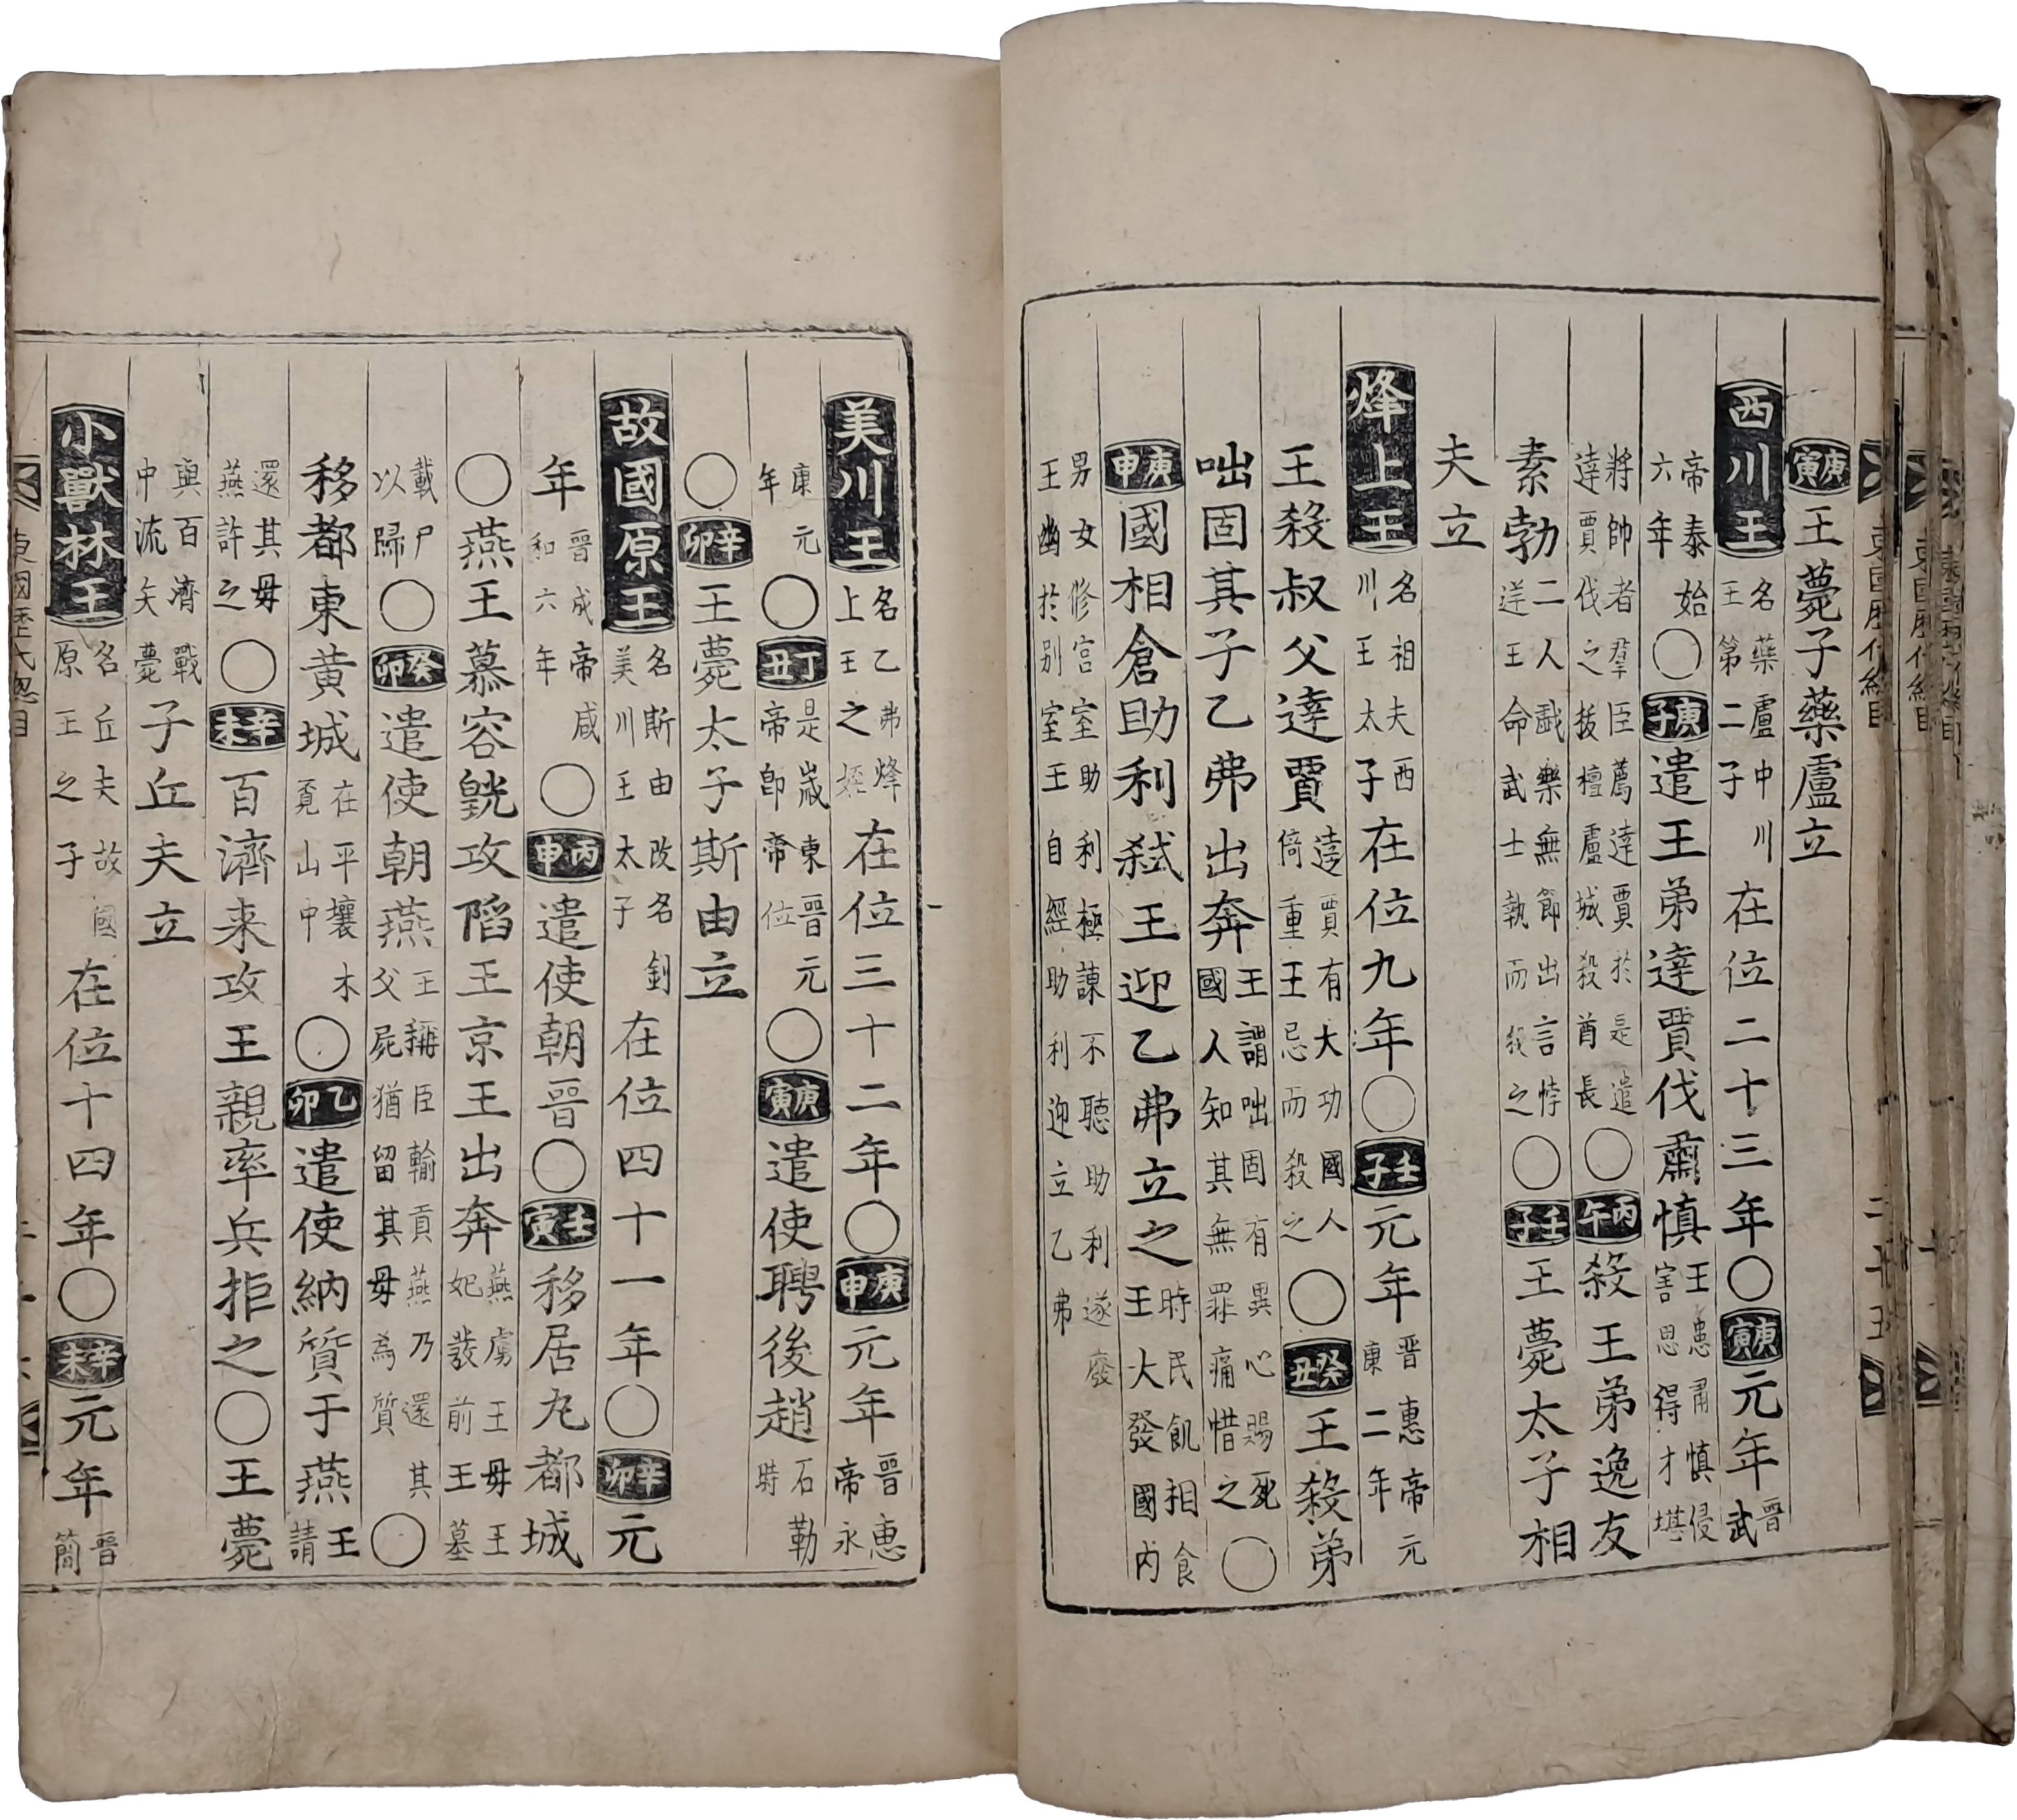 庚寅王薨子藥盧立
西川王名藥盧中川王第二子在位二十三年〇庚寅元年晋武
帝泰始六年〇庚子遣王弟達賈伐肅慎王患肅慎侵害思得才堪
將帥者羣臣薦達賈於是遣達賈伐之拔檀盧城殺酋長〇丙午殺王弟逸友
素勃二人戱樂無節出言悖逆王命武士執而戕之〇壬子王薨太子相
夫立
烽上王名相夫西川王太子在位九年〇壬子元年晋惠帝元康二年
王殺叔父達賈達賈有大功國人倚重王忌而殺之〇癸丑王殺弟
咄固其子乙弗出奔王謂咄固有異心賜死國人知其無罪痛惜之〇
庚申國相倉助利弑王迎乙弗立之時民飢相食王大發國內
男女修宮室助利極諫不聽助利遂廢王幽於別室王自經助利迎立乙弗
美川王名乙弗烽上王之姪在位三十二年〇庚申元年晋惠帝永
康元年〇丁丑是歲東晋元帝卽帝位〇庚寅遣使聘後趙石勒時
〇辛卯王薨太子斯由立
故國原王名斯由改名釗美川王太子在位四十一年〇辛卯元
年晋成帝咸和六年〇丙申遣使朝晋〇壬寅移居丸都城
〇燕王慕容皝攻陷王京王出奔燕虜王母王妃發前王墓
載尸以歸〇癸卯遣使朝燕王稱臣輸貢燕乃還其父屍猶留其母爲質〇
移都東黃城在平壤木覓山中〇乙卯遣使納質于燕王請
還其母燕許之〇辛未百濟来攻王親率兵拒之〇王薨
與百濟戰中流矢薨子丘夫立
小獸林王名丘夫故國原王之子在位十四年〇辛未元年晋簡